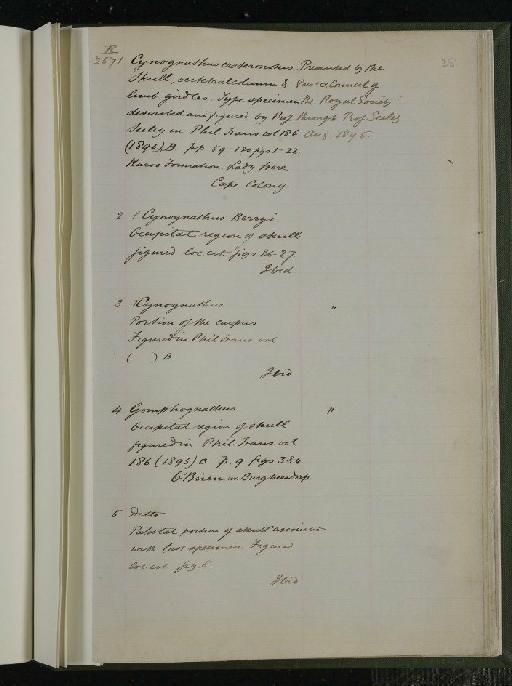 R
2571 Cynognathus crateronotus. Presented by the
Skull, vertebral column & Pres & Council of
limb girdles. Type specimen the Royal Society
described and figured by Prof through Prof. Seeley
Seeley in Phil Trans vol 186 Aug. 1895.
(1895) B pp 59
Karoo Formation, Lady Frere
Cape Colony
28
2 ? Cynognathus Berryi
Occipital region of skull
figured loc cit figs 26-27
Ibid
3 ?Cynognathus "
Portion of the carpus
Figured in Phil Trans vol
( ) B
Ibid
4 Gomphognathus "
Occipital region of skull
figured in Phil Trans vol
186 (1895) B p. 9 figs 3 & 4
Burghersdorp
5 Ditto
Palatal portion of skull associated
with last specimen. Figured
loc cit fig. 5
Ibid